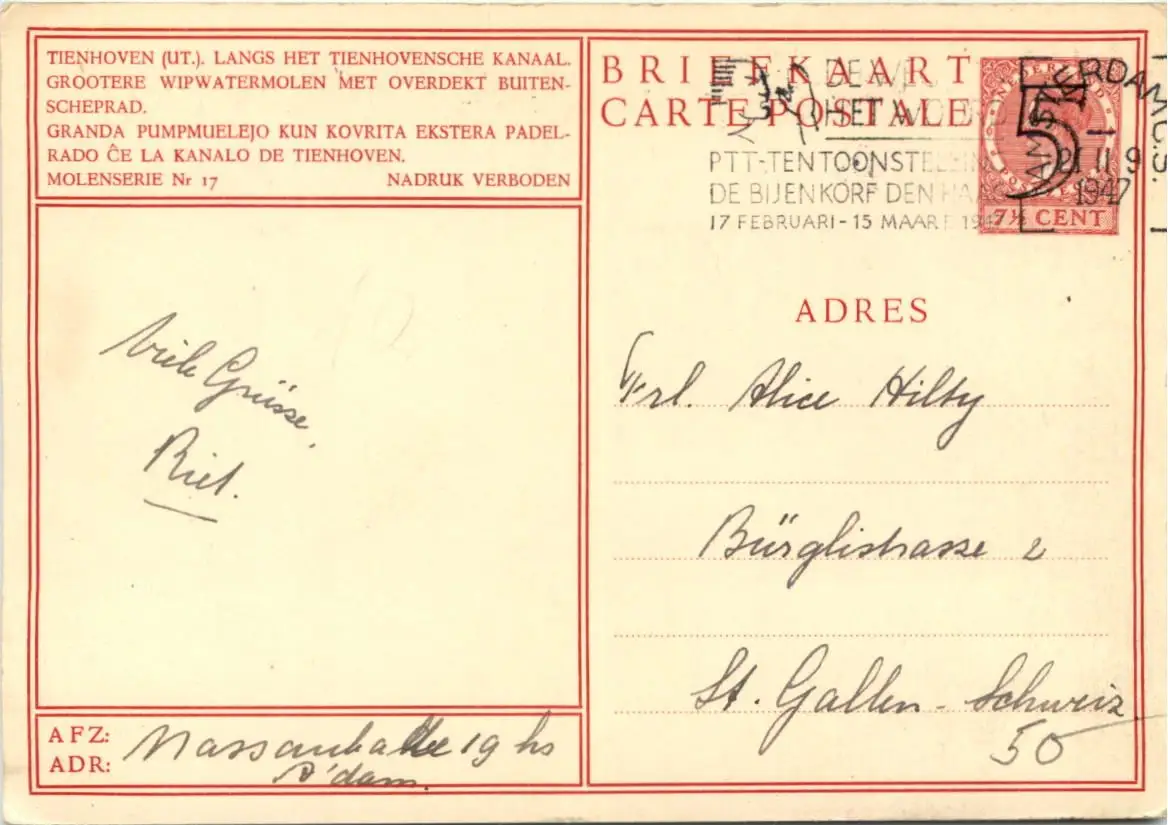 TIENHOVEN (UT.). LANGS HET TIENHOVENSCHE KANAAL.
GROOTERE WIPWATERMOLEN MET OVERDEKT BUITEN-
SCHEPRAD.
GRANDA PUMPMUELEJO KUN KOVRITA EKSTERA PADEL-
RADO ĈE LA KANALO DE TIENHOVEN.
MOLENSERIE Nr 17 NADRUK VERBODEN
BRIEFKAART
CARTE POSTALE
NEDERLAND
5
7½ CENT
AMSTERDAM C.S.
21 II 9
1947
HET
PTT-TENTOONSTELLING
DE BIJENKORF DEN HAAG
17 FEBRUARI - 15 MAART 1947
ADRES
Viele Grüsse,
Riet.
Frl. Alice Hilty
Bürglistrasse 2
St. Gallen - Schweiz
50
AFZ:
ADR:
19 hs
A'dam.